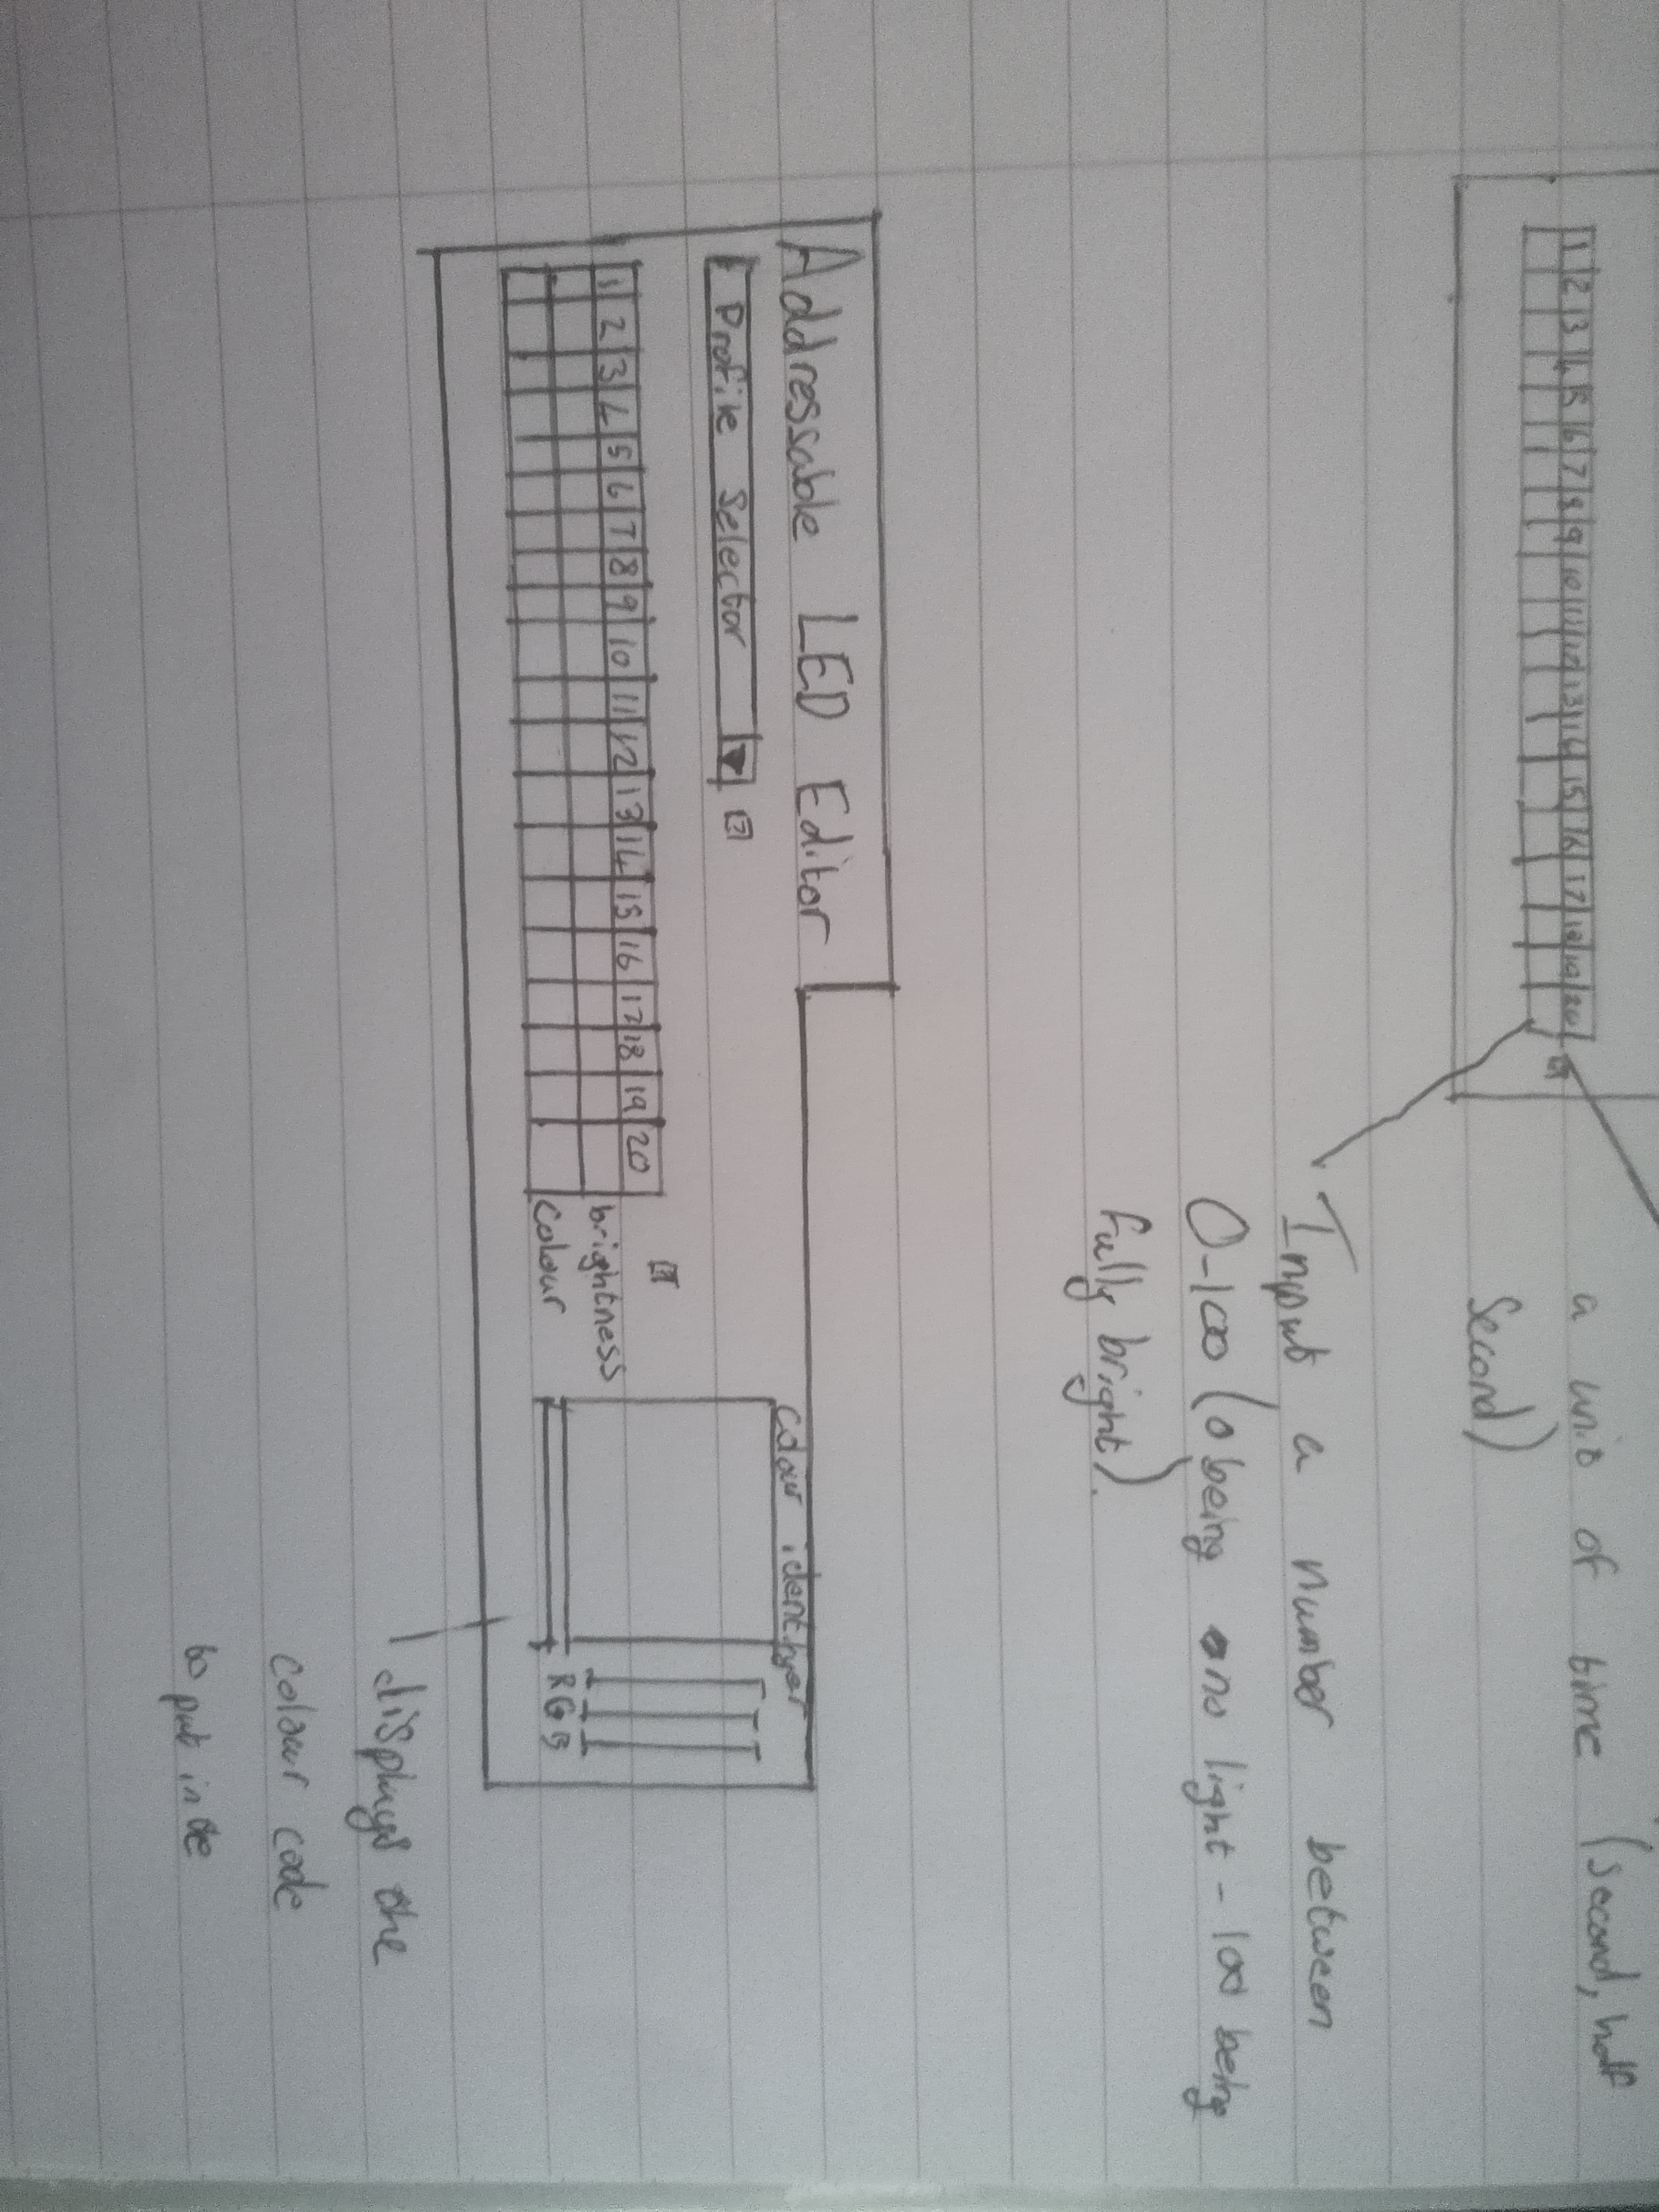 1 2 3 4 5 6 7 8 9 10 11 12 13 14 15 16 17 18 19 20
a unit of time (second, half
second)
Input a number between
0-100 (0 being no light - 100 being
fully bright).
Addressable LED Editor
Profile Selector
?
colour identifyer
1 2 3 4 5 6 7 8 9 10 11 12 13 14 15 16 17 18 19 20
brightness
colour
R G B
displays the
colour code
to put in the